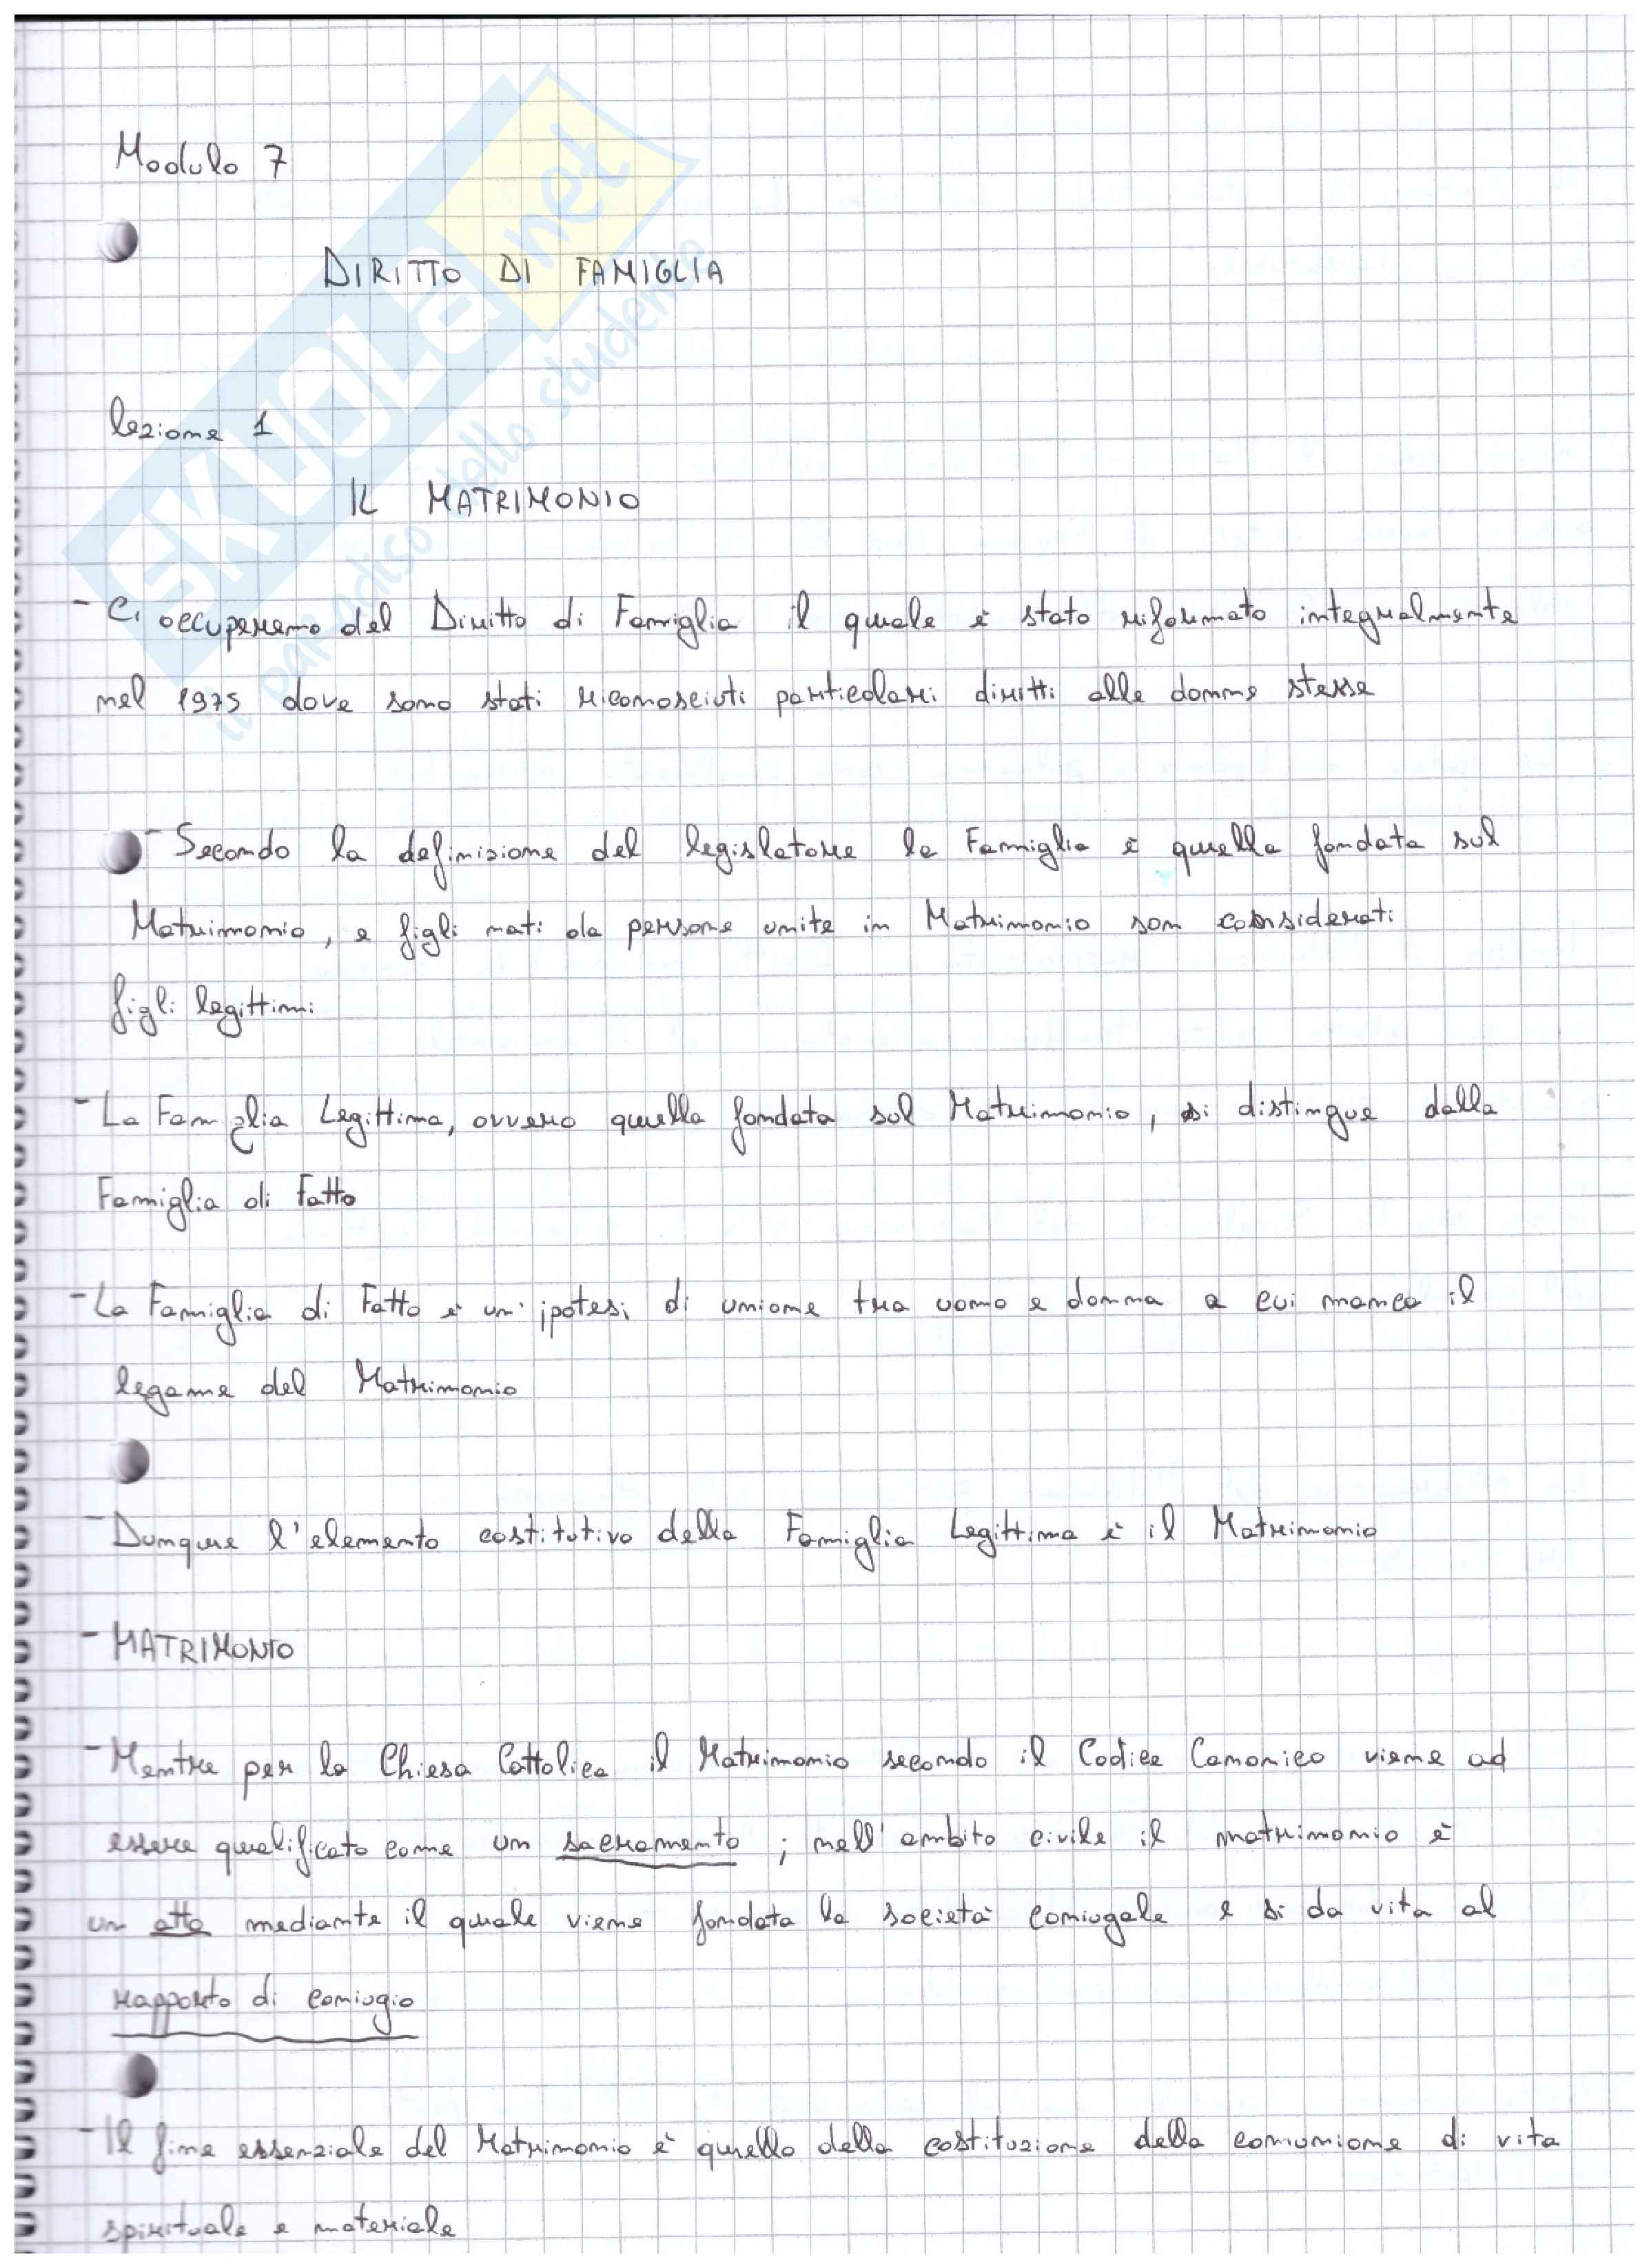 Modulo 7
DIRITTO DI FAMIGLIA
lezione 1
IL MATRIMONIO
- Ci occuperemo del Diritto di Famiglia il quale è stato riformato integralmente
nel 1975 dove sono stati riconosciuti particolari diritti alle donne stesse
- Secondo la definizione del legislatore la Famiglia è quella fondata sul
Matrimonio, e figli nati da persone unite in Matrimonio son considerati
figli legittimi
- La Famiglia Legittima, ovvero quella fondata sul Matrimonio, si distingue dalla
Famiglia di Fatto
- La Famiglia di Fatto è un' ipotesi di unione tra uomo e donna a cui manca il
legame del Matrimonio
- Dunque l'elemento costitutivo della Famiglia Legittima è il Matrimonio
- MATRIMONIO
- Mentre per la Chiesa Cattolica il Matrimonio secondo il Codice Canonico viene ad
essere qualificato come un sacramento ; nell' ambito civile il matrimonio è
un atto mediante il quale viene fondata la società coniugale e si da vita al
rapporto di coniugio
- Il fine essenziale del Matrimonio è quello della costituzione della comunione di vita
spirituale e materiale
SKUOLA.net
il paradiso dello studente